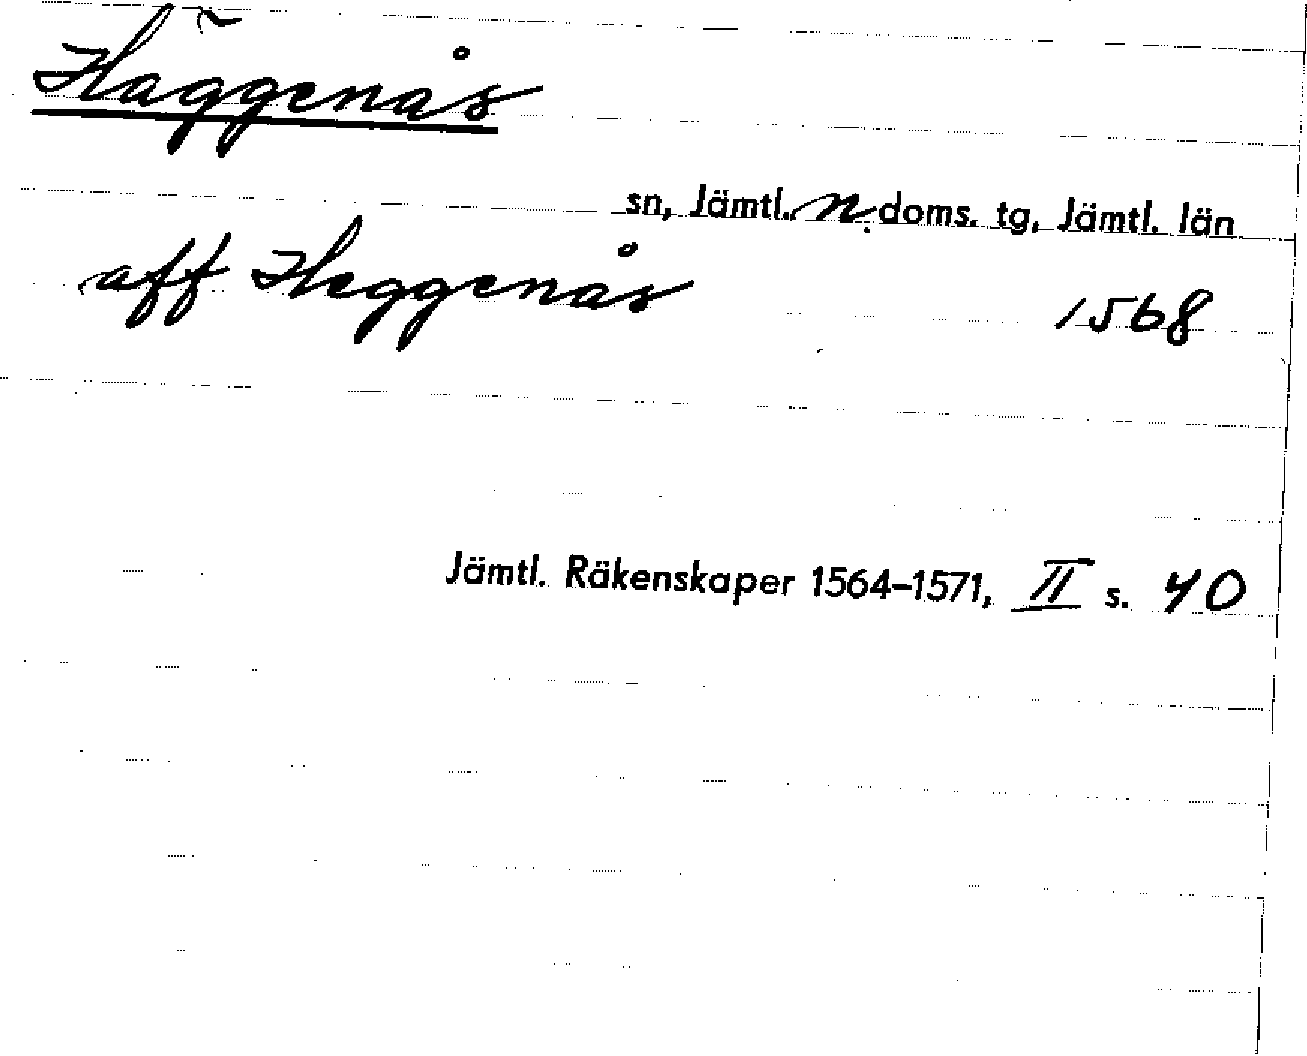 Häggenås
sn, Jämtl. n. doms. tg, Jämtl. län
aff Heggenås 1568
Jämtl. Räkenskaper 1564–1571, II s. 40